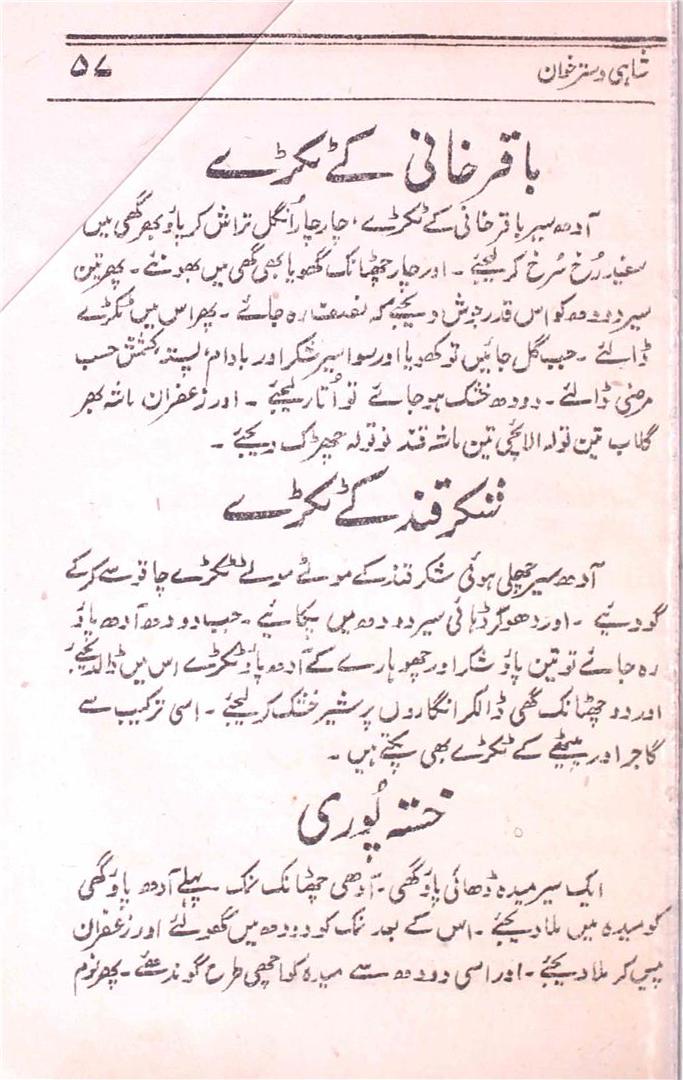 شاہی دسترخوان ۵۷
باقر خانی کے ٹکڑے
آدھ سیر باقر خانی کے ٹکڑے، چار چار اُنگل تراش کر پاؤ بھر گھی میں
سفید رُخ سُرخ کر لیجئے ۔ اور چار چھٹانک کھویا بھی گھی میں بھونئے ۔ پھر تین
سیر دودھ کو اس قدر جوش دیجئے کہ نصف رہ جائے ۔ پھر اس میں ٹکڑے
ڈالئے ۔ جب گل جائیں تو کھویا اور سوا سیر شکر اور بادام، پستہ، کشمش حسب
مرضی ڈالئے ۔ دودھ خشک ہو جائے تو اُتار لیجئے ۔ اور زعفران ماشہ بھر
گلاب تین تولہ الائچی تین ماشہ قند نو تولہ چھڑک دیجئے ۔
شکر قند کے ٹکڑے
آدھ سیر چھلی ہوئی شکر قند کے موٹے موٹے ٹکڑے چاقو سے کر کے
گودئیے ۔ اور دھو کر ڈہائی سیر دودھ میں پکائیے ۔ جب دودھ آدھ پاؤ
رہ جائے تو تین پاؤ شکر اور چھوہارے کے آدھ پاؤ ٹکڑے اس میں ڈالدیجئے
اور دو چھٹانک گھی ڈالکر انگاروں پر شیر خشک کر لیجئے ۔ اسی ترکیب سے
گاجر اور پیٹھے کے ٹکڑے بھی پکتے ہیں ۔
خستہ پُوری
ایک سیر میدہ ڈھائی پاؤ گھی ۔ آدھی چھٹانک نمک ۔ پہلے آدھ پاؤ گھی
کو میدہ میں ملا دیجئے ۔ اس کے بعد نمک کو دودھ میں گھولئے اور زعفران
پیس کر ملا دیجئے ۔ اور اسی دودھ سے میدہ کو اچھی طرح گوندھئے ۔ پھر نرم